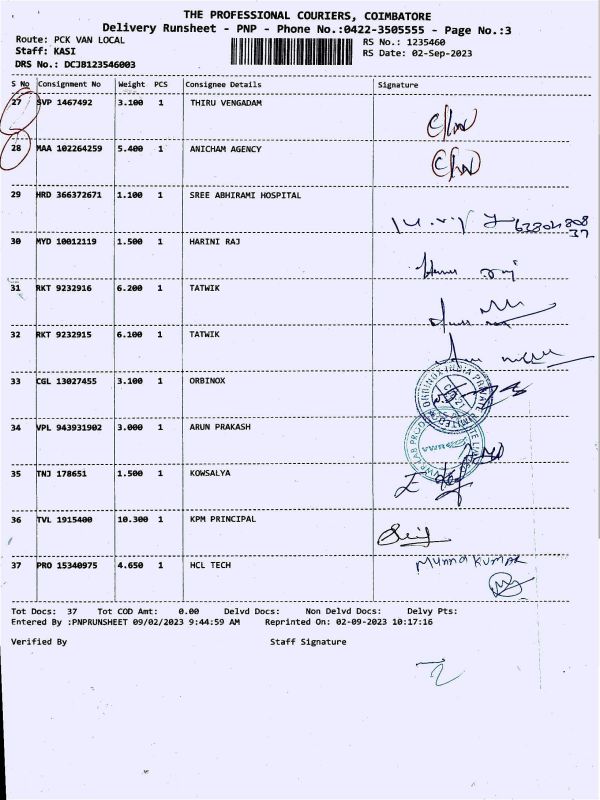 THE PROFESSIONAL COURIERS, COIMBATORE
Delivery Runsheet - PNP - Phone No.:0422-3505555 - Page No.:3
Route: PCK VAN LOCAL
RS No.: 1235460
Staff: KASI
RS Date: 02-Sep-2023
DRS No.: DCJB123546003
S No Consignment No Weight PCS Consignee Details Signature
27 SVP 1467492 3.100 1 THIRU VENGADAM
28 MAA 102264259 5.400 1 ANICHAM AGENCY
29 HRD 366372671 1.100 1 SREE ABHIRAMI HOSPITAL
30 MYD 10012119 1.500 1 HARINI RAJ
31 RKT 9232916 6.200 1 TATWIK
32 RKT 9232915 6.100 1 TATWIK
33 CGL 13027455 3.100 1 ORBINOX
34 VPL 943931902 3.000 1 ARUN PRAKASH
35 TNJ 178651 1.500 1 KOWSALYA
36 TVL 1915400 10.300 1 KPM PRINCIPAL
37 PRO 15340975 4.650 1 HCL TECH
Munna Kumar
Tot Docs: 37 Tot COD Amt: 0.00 Delvd Docs: Non Delvd Docs: Delvy Pts:
Entered By :PNPRUNSHEET 09/02/2023 9:44:59 AM Reprinted On: 02-09-2023 10:17:16
Verified By Staff Signature